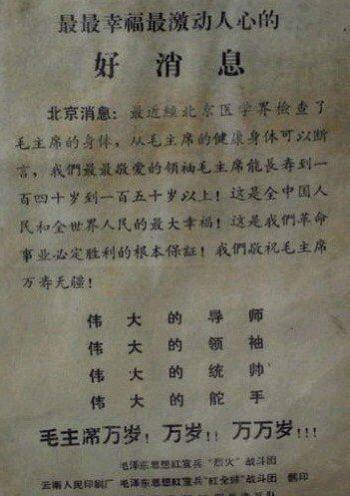 最最幸福最激动人心的
好消息
北京消息：最近经北京医学界检查了
毛主席的身体，从毛主席的健康身体可以断
言，我們最最敬爱的領袖毛主席能長寿到一
百四十岁到一百五十岁以上！这是全中国人
民和全世界人民的最大幸福！这是我們革命
事业必定胜利的根本保証！我們敬祝毛主席
万寿无疆！
伟大的导师
伟大的領袖
伟大的统帅
伟大的舵手
毛主席万岁！万岁！！万万岁！！！
毛泽东思想紅宣兵“烈火”战斗团
云南人民印刷厂 毛泽东思想紅宣兵“紅全球”战斗团 翻印